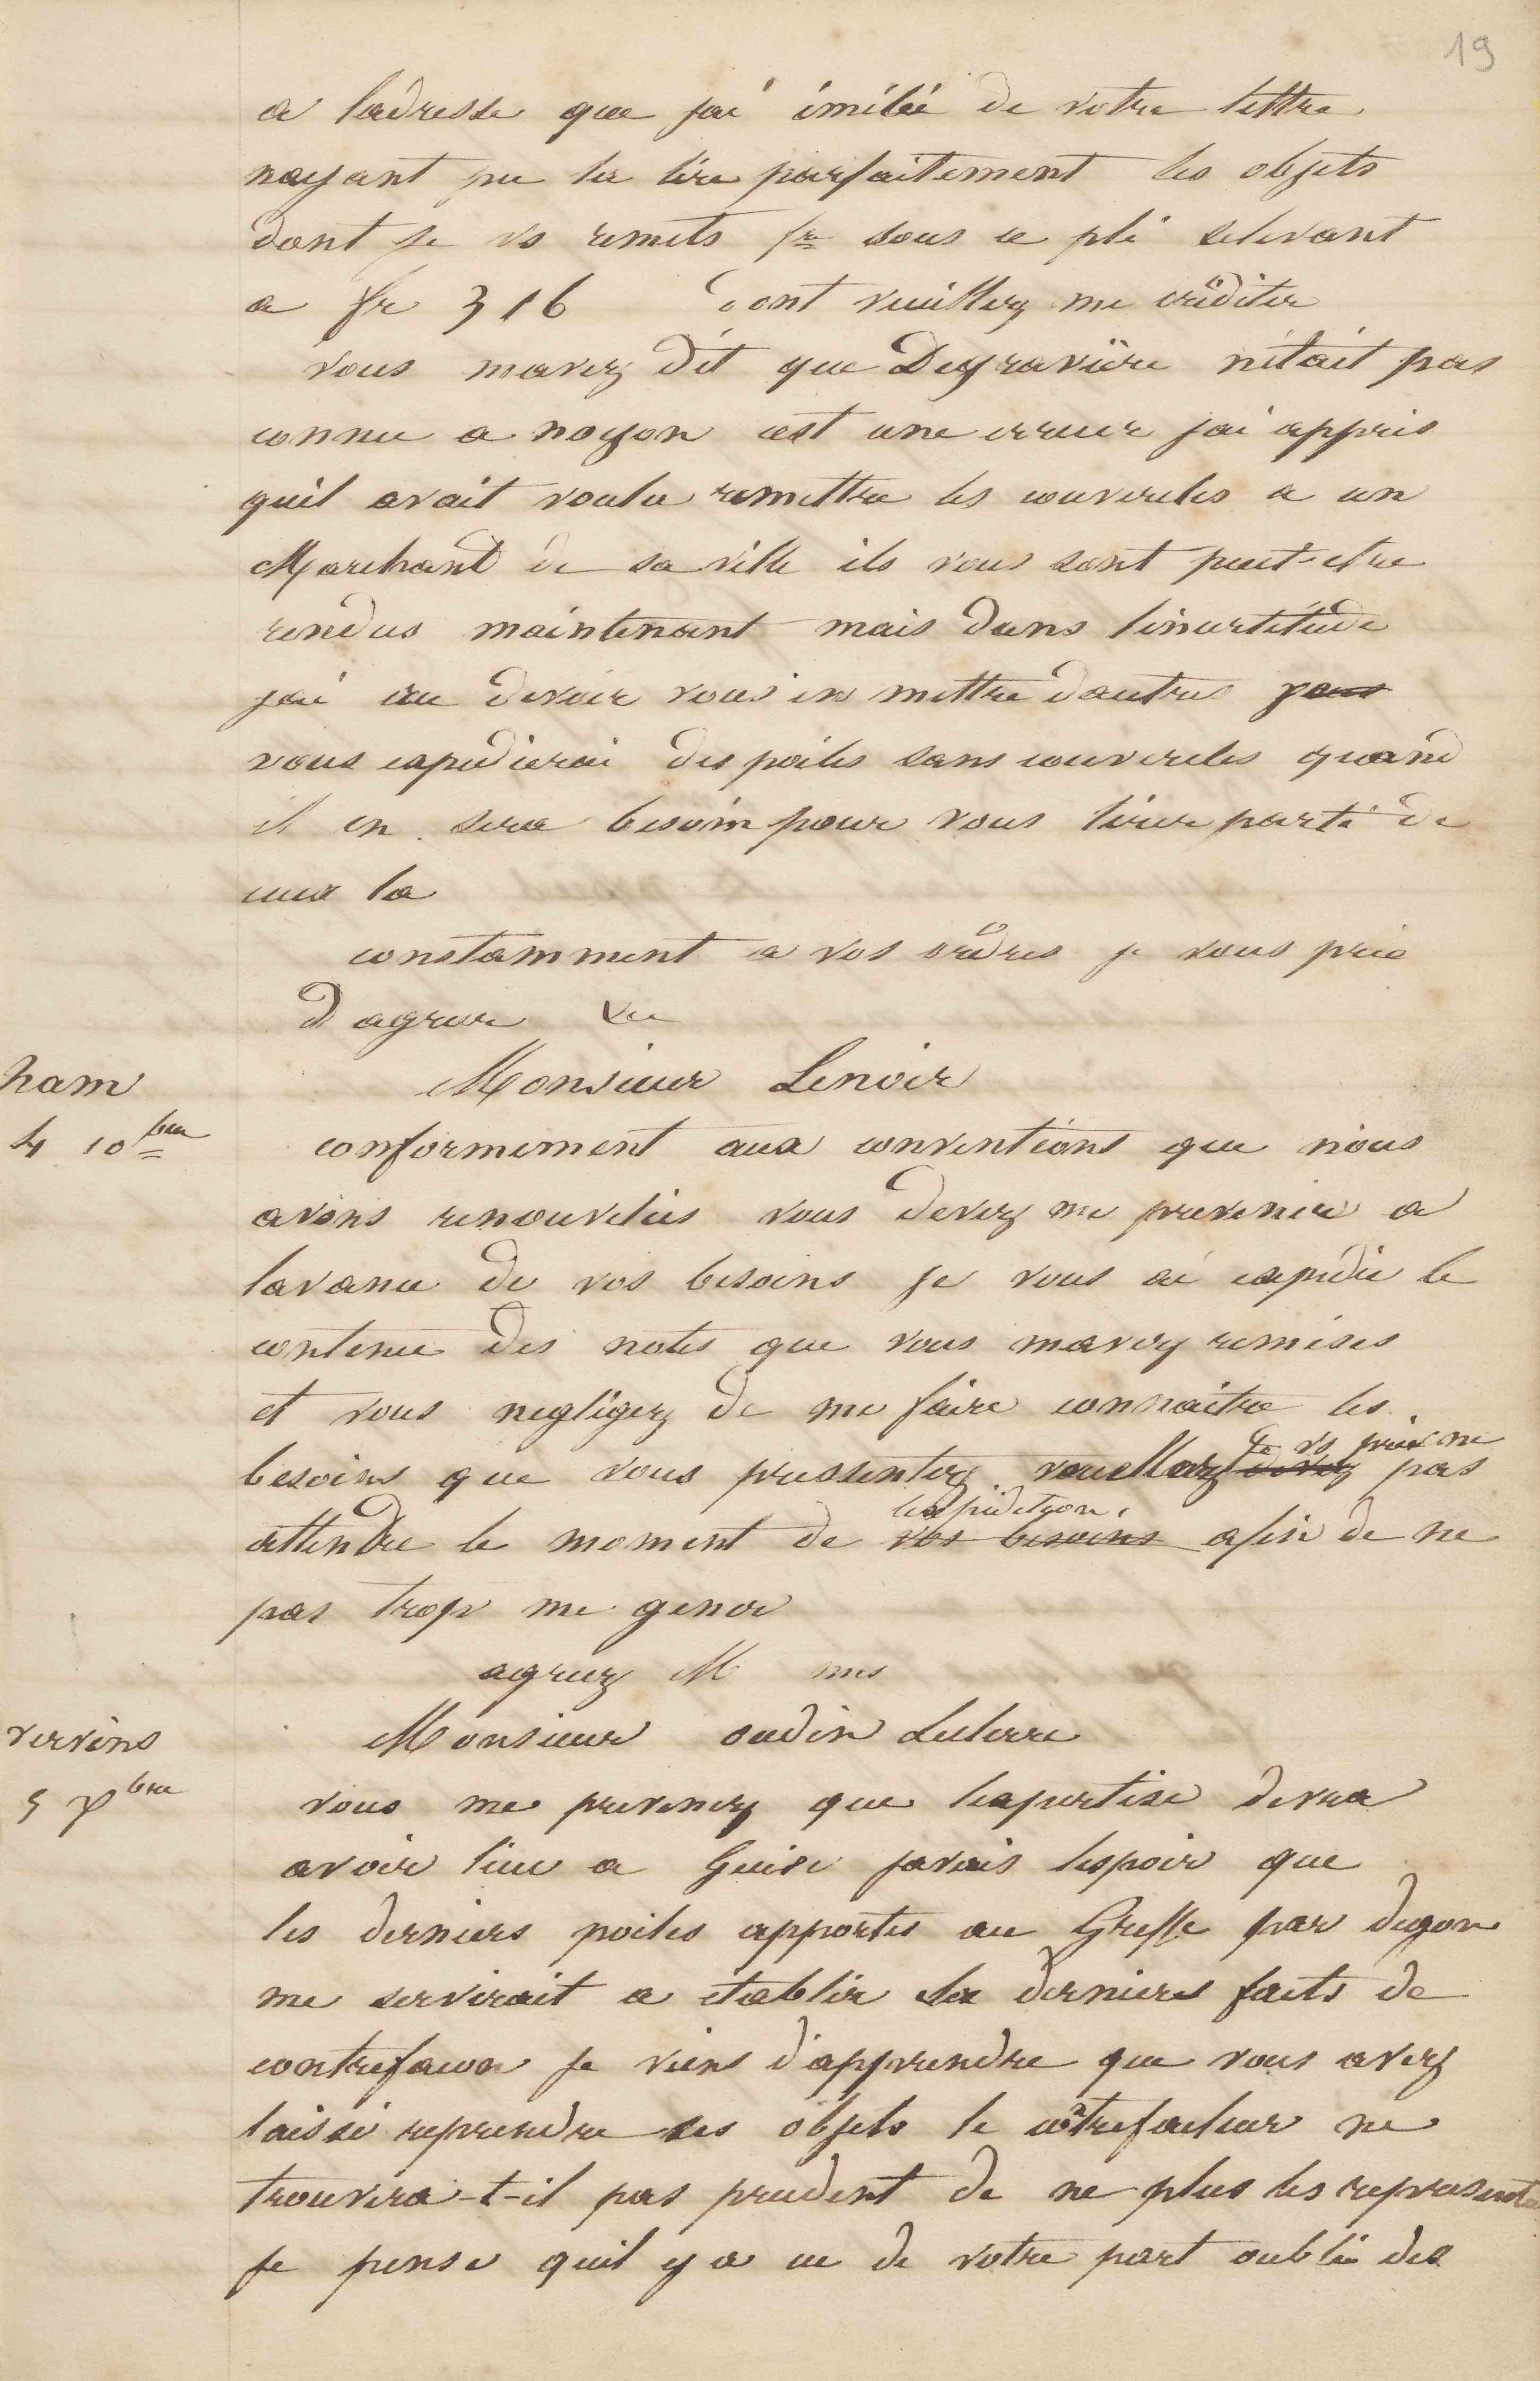 19
a ladresse que jai imitée de votre lettre
nayant pu la lire parfaitement les objets
dont je vs remets fre sous ce pli selevant
a fr 316 dont veuillez me créditer
vous mavez dit que Degravière nétait pas
connu a noyon cest une erreur jai appris
quil avait voulu remettre les couvercles a un
Marchant de sa ville ils vous sont peut-etre
rendus maintenant mais dans lincertitude
jai cru devoir vous en mettre dautres
vous expedierai des poiles sans couvercles quand
il en sera besoin pour vous tirer parti de
ceux la
constamment a vos ordres je vous prie
d agreer &c
ham
Monsieur Lenoir
4 10bre
conformement aux conventions que nous
avons renouvelées vous devez me prevenir a
lavance de vos besoins je vous ai expedié le
contenu des notes que vous mavez remises
et vous negligez de me faire connaitre les
besoins que vous pressentez veuillez je vs prie ne pas
attendre le moment de lexpedetyon vos besoins afin de ne
pas trop me gener
agreez M mes
vervins
Monsieur oudin Leclerre
5 Xbre
vous me prevenez que lexpertise devra
avoir lieu a Guise javais lespoir que
les derniers poiles apportés au Greffe par degon
me servirait a etablir les derniers faits de
contrefacon je viens d'apprendre que vous avez
laissé reprendre ses objets le côtrefacteur ne
trouvera-t-il pas prudent de ne plus les representer
je pense quil y a eu de votre part oubli des